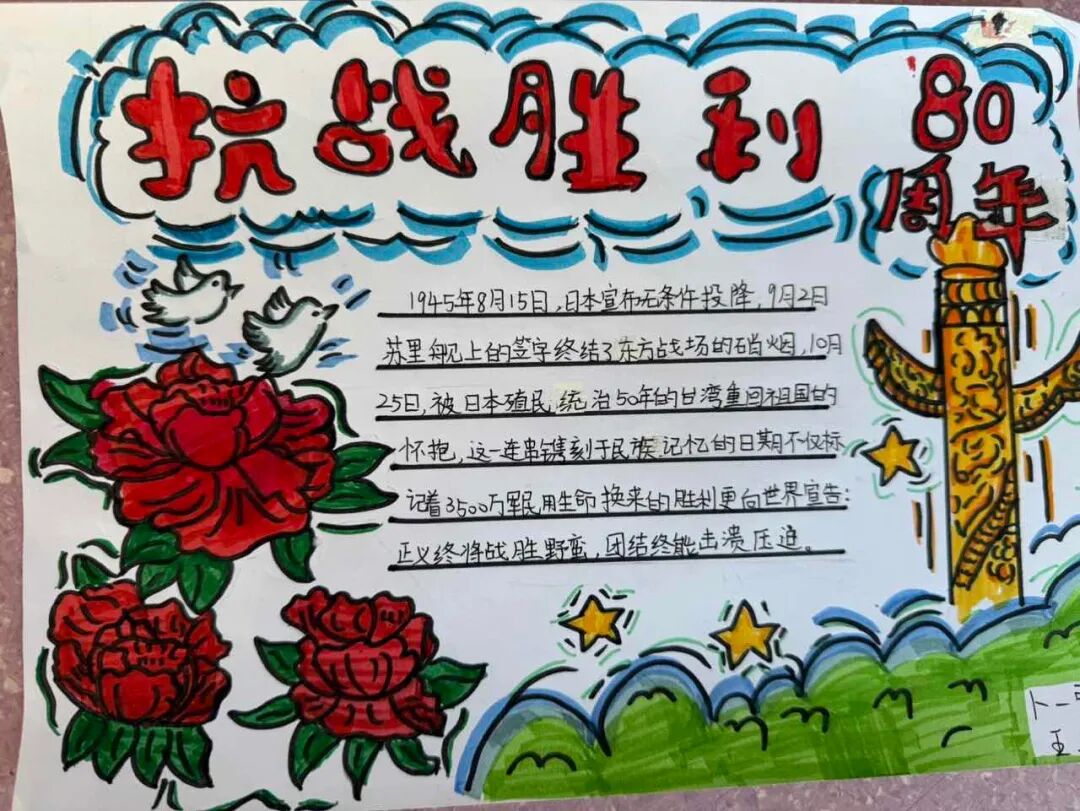 抗战胜利
80
周年
1945年8月15日,日本宣布无条件投降,9月2日
苏里舰上的签字终结了东方战场的硝烟,10月
25日,被日本殖民统治50年的台湾重回祖国的
怀抱,这一连串镌刻于民族记忆的日期不仅标
记着3500万军民用生命换来的胜利更向世界宣告:
正义终将战胜野蛮,团结终能击溃压迫。
卜一
王